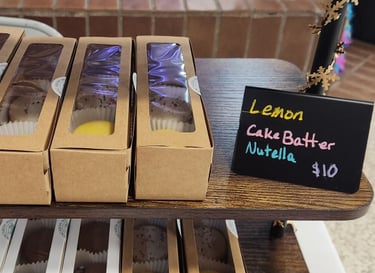 Lemon
Cake Batter
Nutella
$10